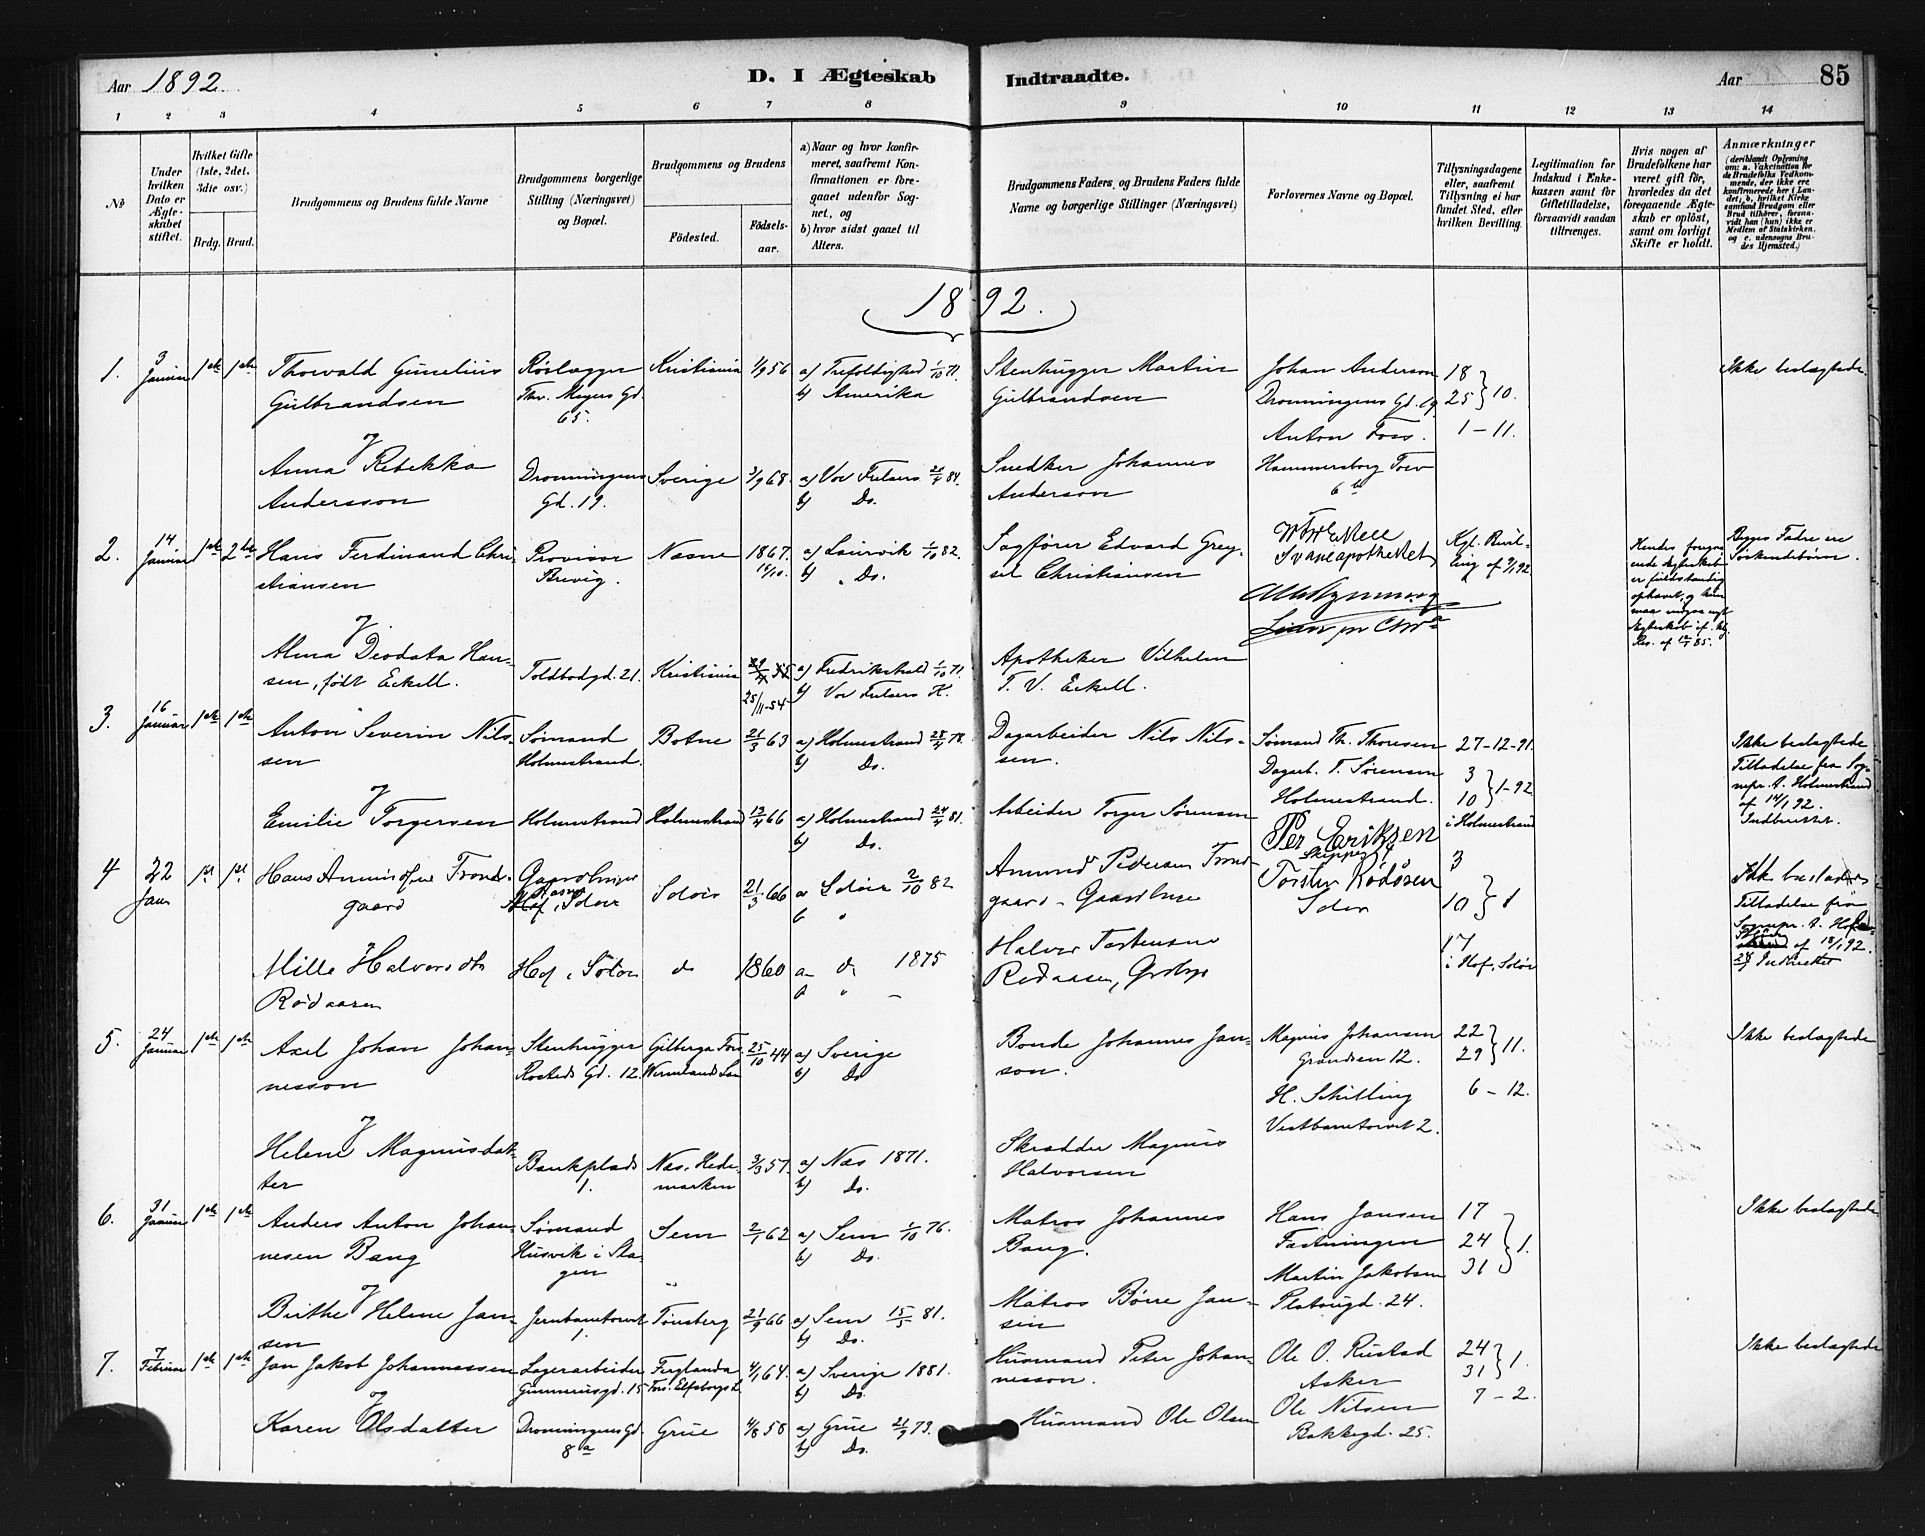 Aar 1892.
D. I Ægteskab Indtraadte.
Aar 85
1 2 3 4 5 6 7 8 9 10 11 12 13 14
No
Under hvilken Dato er Ægteskabet stiftet.
Hvilket Gifte (1ste, 2det, 3die osv.)
Brdg. Brud.
Brudgommens og Brudens fulde Navne
Brudgommens borgerlige Stilling (Næringsvei) og Bopæl.
Brudgommens og Brudens
Fødested. Fødselsaar.
a) Naar og hvor konfirmeret, saafremt Konfirmationen er foregaaet udenfor Sognet, og
b) hvor sidst gaaet til Alters.
Brudgommens Faders, og Brudens Faders fulde Navne og borgerlige Stillinger (Næringsvei)
Forlovernes Navne og Bopæl.
Tillysningsdagene eller, saafremt Tillysning ei har fundet Sted, efter hvilken Bevilling.
Legitimation for Indskud i Enkekassen samt for Giftetilladelse, forsaavidt saadan tiltrænges.
Hvis nogen af Brudefolkene har været gift før, hvorledes da det foregaaende Ægteskab er opløst, samt om lovligt Skifte er holdt.
Anmærkninger
(deriblandt Oplysning om: a. Vakcination for de Brudefolks Vedkommende, der ikke ere konfirmerede her i Landet; b. hvilket Kirkesamfund Brudgom eller Brud tilhører, forsaavidt han (hun) ikke er Medlem af Statskirken, og c. udensogns Brudes Hjemsted.)
1892.
1. 3 Januar 1ste 1ste Thorvald Gunelius Gulbrandsen
Rørlægger Thv. Meyers Gd. 65.
Kristiania 1/9 56
a) Trefoldighed 1/10 71.
b) Amerika
Stenhugger Martin Gulbrandsen
Johan Anderson Dronningens Gd. 19.
Anton Foss. Hammersborg Torv 6 b
18 25 } 10.
1 - 11.
Ikke beslægtede.
&
Anna Rebekka Andersson
Dronningens Gd. 19.
Sverige 3/9 68.
a) Vor Frelsers 20/4 84.
b) Do.
Snedker Johannes Anderson
2. 14 Januar 1ste 2det Hans Ferdinand Christiansen
Provisor Brevig.
Næsne 1867. 15/10.
a) Laurvik 1/10 82.
b) Do.
Sagfører Edvard Christiansen
Svaneapotheket
Kgl. Bevilling af 9/1 92
Hendes foregaaende Ægteskab er fuldstændig ophævet, og hun maa indgaa nyt Ægteskab
Begges Fædre ere Søskendebørn.
&
Alma Deodata Hansen, født Eckell.
Toldbodgd. 21.
Kristiania
25/11-54
a) Fredrikshald 1/10 71.
b) Vor Frelsers K.
Apotheker Vilhelm T. V. Eckell.
3. 16 Januar 1ste 1ste Anton Severin Nilssen
Sømand Holmestrand.
Botne 21/3 63
a) Holmestrand 28/4 78.
b) Do.
Dagarbeider Nils Nilssen.
Sømand Th. Thoresen
Dagarb. T. Sørensen Holmestrand.
27-12-91.
3 10 } 1-92
i Holmestrand
Ikke beslægtede
Tilladelse fra Sognepr. t. Holmestrand af 14/1 92.
Indberettet.
&
Emilie Torgersen
Holmestrand Holmestrand 12/4 66
a) Holmestrand 24/4 81.
b) Do.
Arbeider Torger Sørensen
4 22 Jan 1st 1st Hans Amundsen Trondgaard
Hof, Solør
Solør 21/3 66
a Solør 2/10 82
b "
Amund Pedersen Trondgaard - Gaardbruger
Per Eriksen Skipper
Torsten Rødøsen Solør
3 10 } 1
17 i Hof, Solør
Ikke beslægtede
Tilladelse fra Sognepr. t. Hof af 18/1 92.
Indberettet
&
Mille Halvorsdtr Rødaasen
Hof, Solør do 1860
a do 1875
b " -
Halvor Torstensen Rødaasen, Grdbr
5. 24 Januar 1ste 1ste Axel Johan Johannesson
Stenhugger Rosteds Gd. 12.
Gilberga Fors. Wermlands Län 25/10 44
a) Sverige
b) Do
Bonde Johannes Janson.
Magnus Johansen Grændsen 12.
H. Schilling Vestbanetorvet 2.
22 29 } 11.
6 - 12.
Ikke beslægtede
&
Helene Magnusdatter
Bankplads 1.
Næs, Hedemarken 3/3 57.
a) Næs 1871.
b) Do.
Skrædder Magnus Halvorsen
6. 31 Januar 1ste 1ste Anders Anton Johannesen Bang
Sømand Husvik i Slagen
Sem 2/1 62
a) Sem 1/10 76.
b) Do.
Matros Johannes Bang.
Hans Jansen Fæstningen
Martin Jakobsen Platougd. 24.
17 24 31 } 1.
Ikke beslægtede
&
Birthe Helene Jansen
Jernbanetorvet 1.
Tønsberg 21/9 66
a) Sem 15/5 81.
b) Do.
Matros Børre Jansen
7. 7 Februar 1ste 1ste Jan Jakob Johannessen
Lagerarbeider Gunnerusgd. 15
Färglanda Fors. Elfsborgs L. 4/1 64.
a) Sverige 1881.
b) Do.
Husmand Peter Johannesson.
Ole O. Rustad Asker
Ole Nilsen Bakkegd. 25.
24 31 } 1.
7 - 2.
Ikke beslægtede
&
Karen Olsdatter
Dronningens Gd. 8 a
Grue 4/8 58
a) Grue 21/9 73.
b) Do.
Husmand Ole Olsen